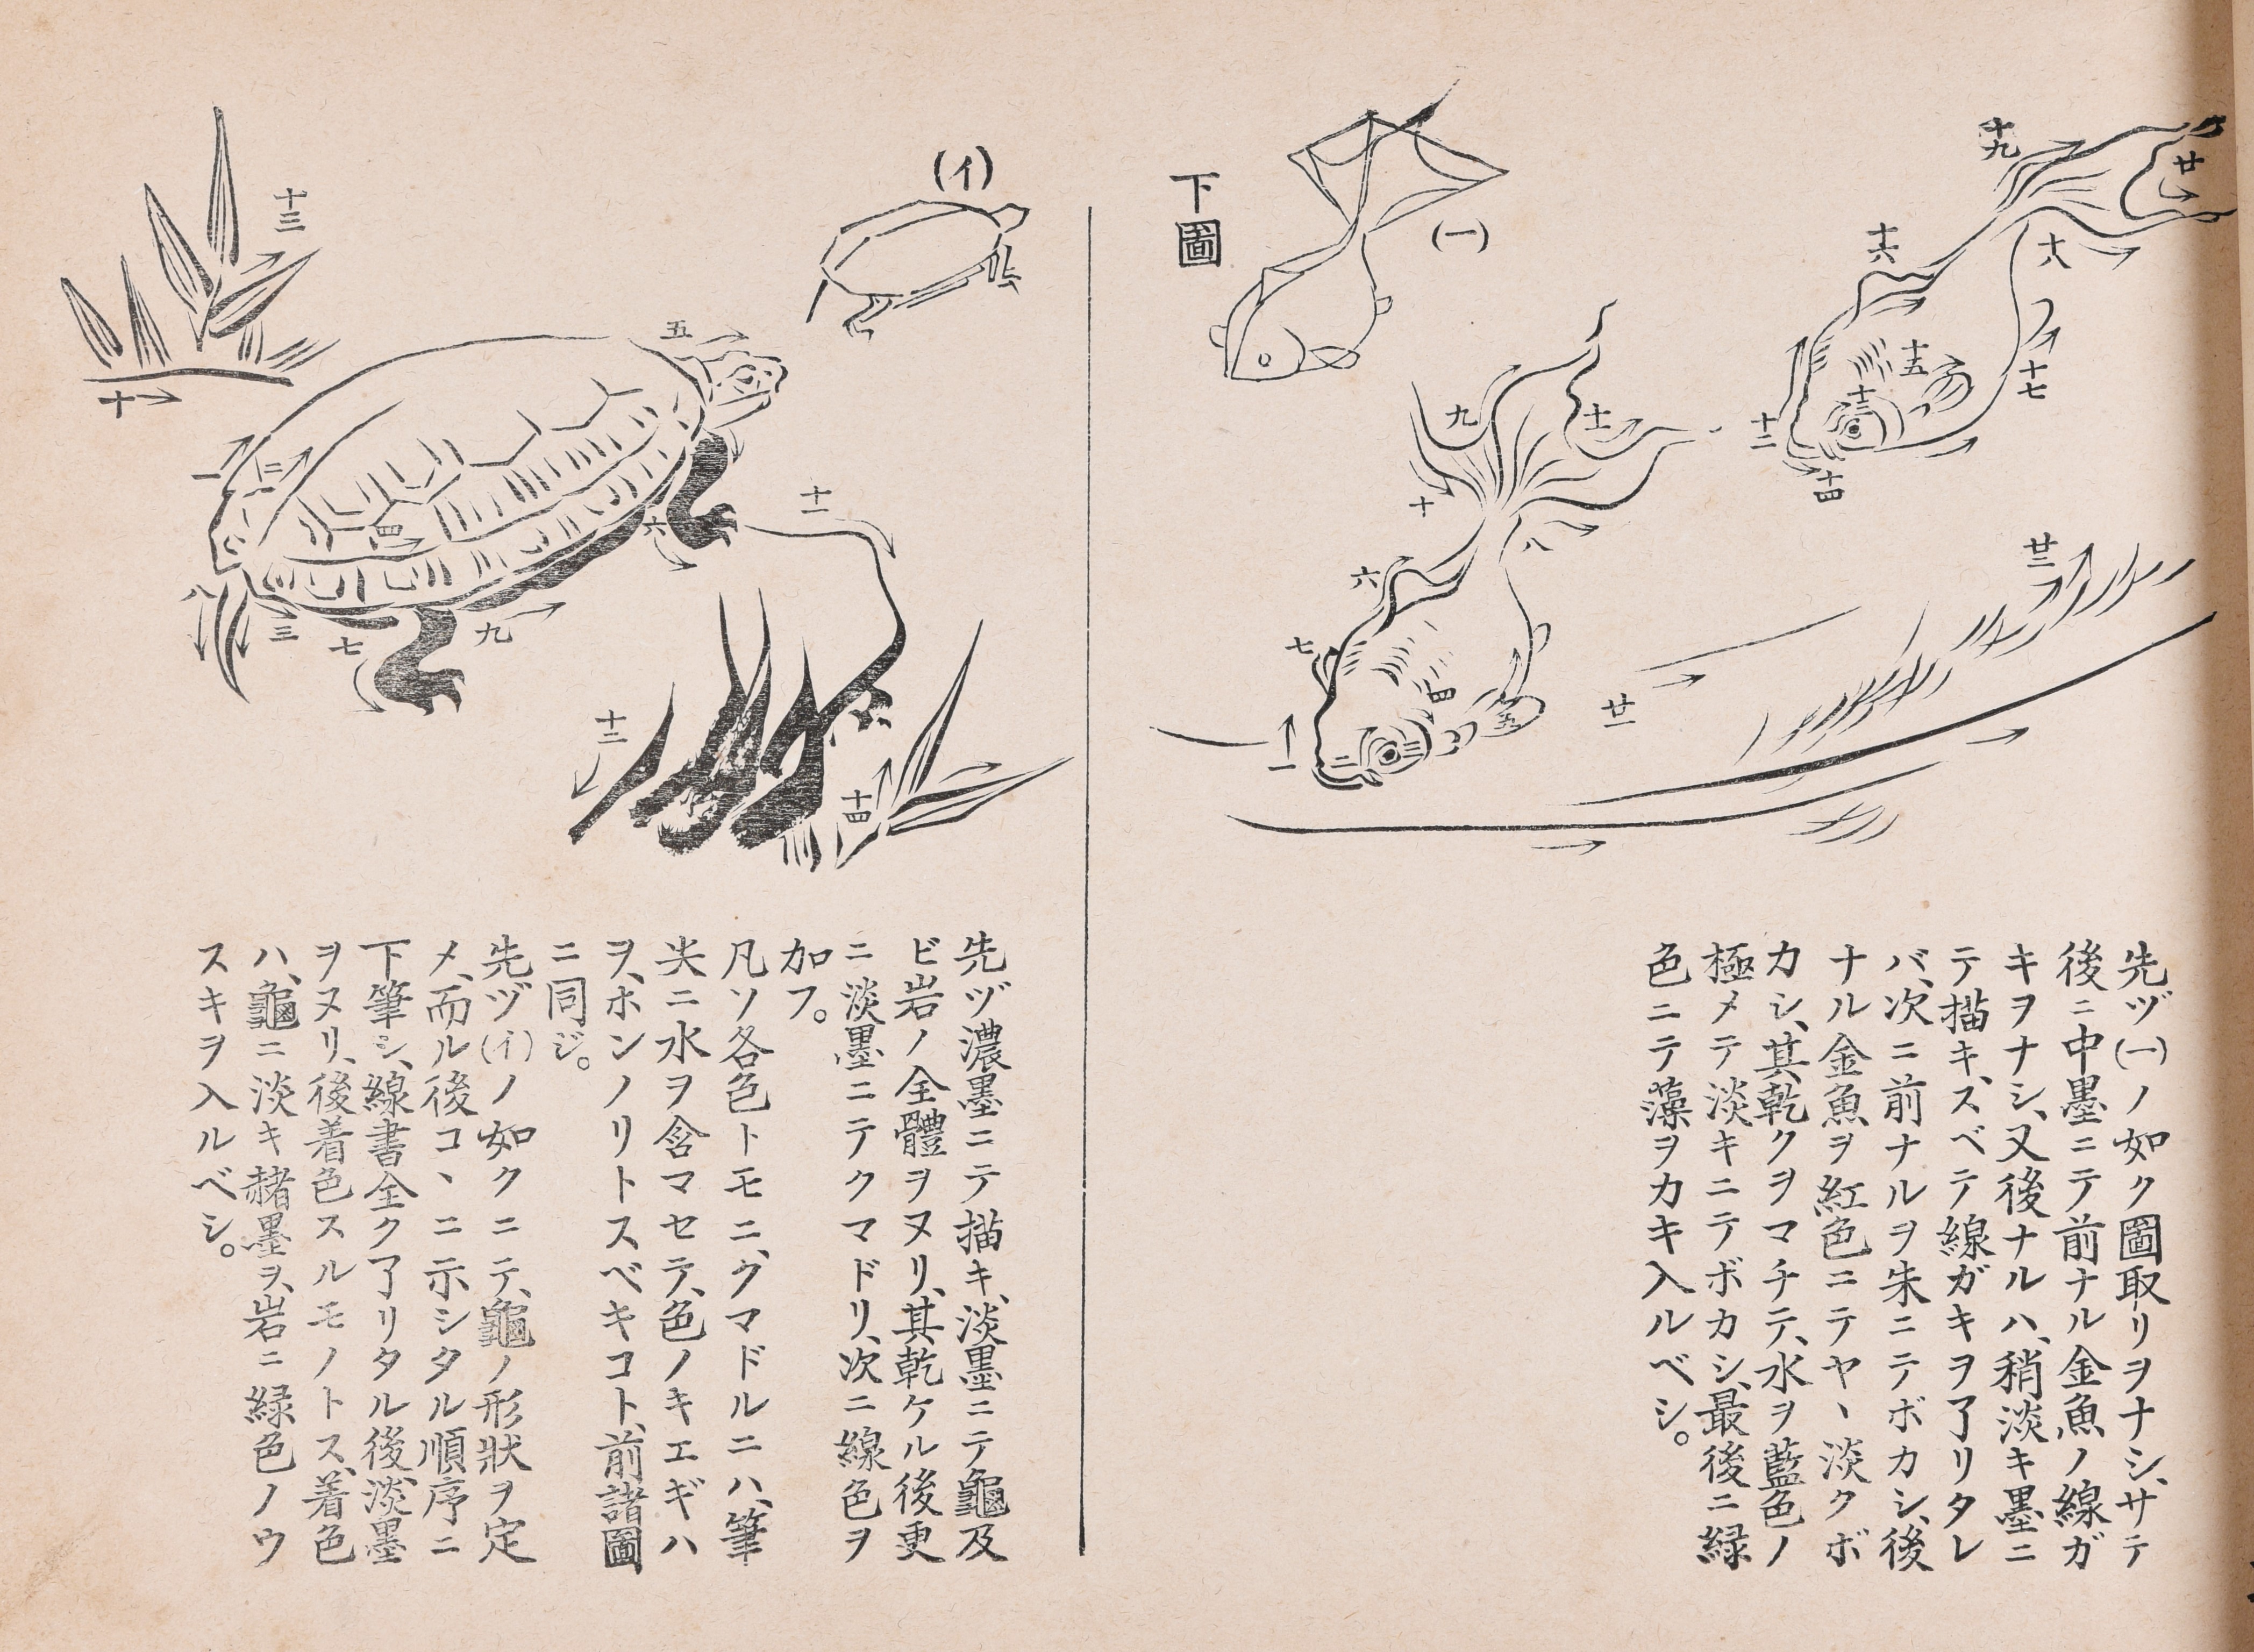 十九
廿
十八
十六
十七
十五
十三
十二
十四
下圖
(一)
九
十一
十
八
六
七
四
五
三
二
一
廿二
廿一
先ヅ(一)ノ如ク圖取リヲナシ、サテ
後ニ中墨ニテ前ナル金魚ノ線ガ
キヲナシ、又後ナルハ、稍淡キ墨ニ
テ描キ、スベテ線ガキヲ了リタレ
バ、次ニ前ナルヲ朱ニテボカシ、後
ナル金魚ヲ紅色ニテヤヽ淡クボ
カシ、其乾クヲマチテ、水ヲ藍色ノ
極メテ淡キニテボカシ、最後ニ緑
色ニテ藻ヲカキ入ルベシ。
(イ)
十三
十
五
一
二
四
六
十一
八
三
七
九
十二
十四
先ヅ濃墨ニテ描キ、淡墨ニテ龜及
ビ岩ノ全體ヲヌリ、其乾ケル後更
ニ淡墨ニテクマドリ、次ニ線色ヲ
加フ。
凡ソ各色トモニ、クマドルニハ、筆
尖ニ水ヲ含マセテ、色ノキエギハ
ヲ、ホンノリトスベキコト、前諸圖
ニ同ジ。
先ヅ(イ)ノ如クニテ、龜ノ形狀ヲ定
メ、而ル後コヽニ示シタル順序ニ
下筆シ、線書全ク了リタル後、淡墨
ヲヌリ、後着色スルモノトス、着色
ハ、龜ニ淡キ赭墨ヲ、岩ニ緑色ノウ
スキヲ入ルベシ。